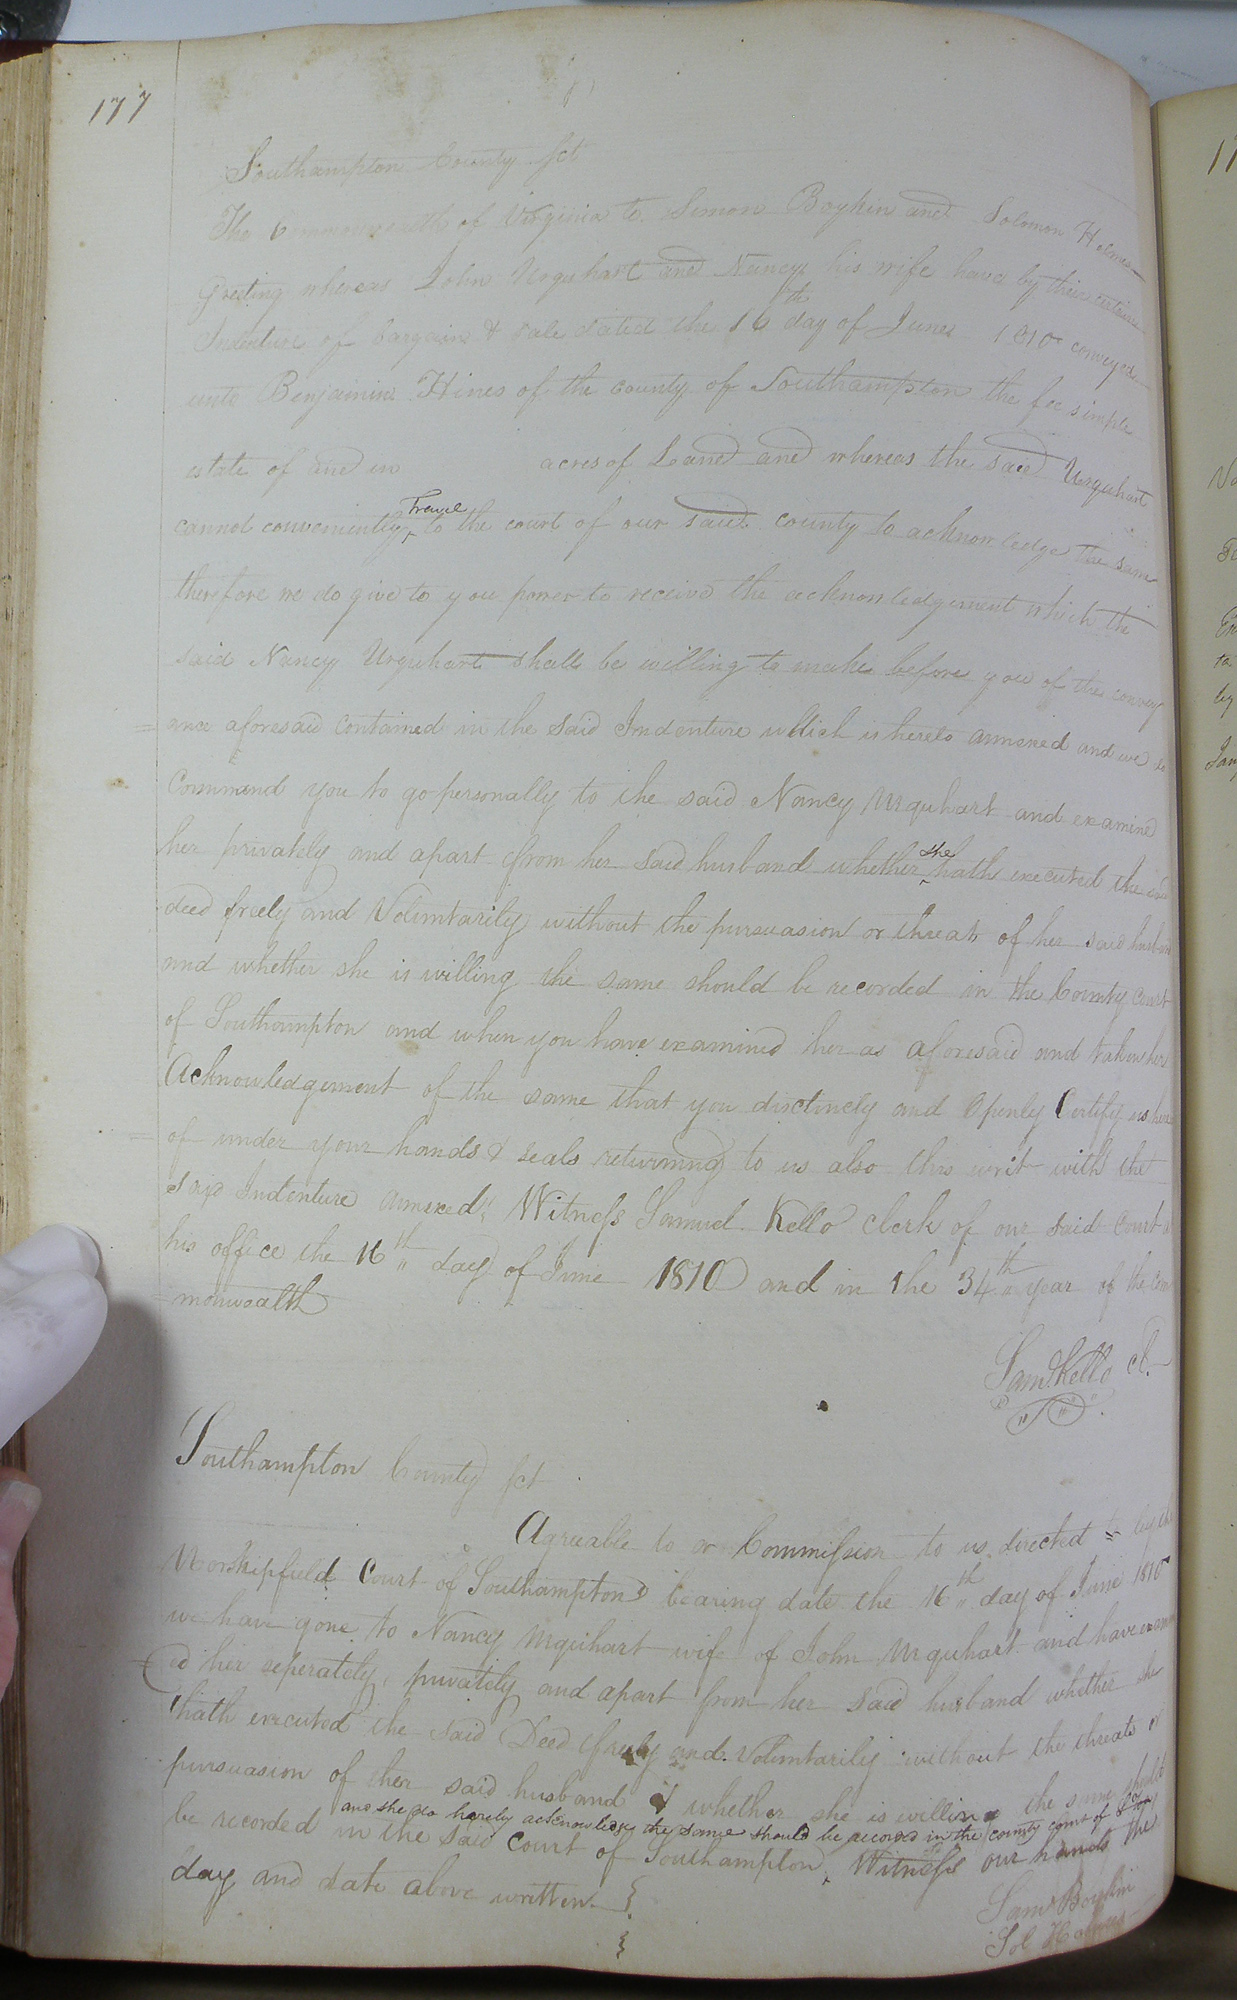 177
Southampton County sct
The Commonwealth of Virginia to Simon Boykin and Solomon Holmes
Greeting whereas John Urquhart and Nancy his wife have by their certain
Indenture of bargain & sale dated the 16th day of June 1810 conveyed
unto Benjamin Hines of the county of Southampton the fee simple
estate of and in acres of Land and whereas the said Urquhart
cannot conveniently Travel to the court of our said county to acknowledge the same
therefore we do give to you power to receive the acknowledgement which the
said Nancy Urquhart shall be willing to make before you of the convey
=ance aforesaid contained in the said Indenture which is hereto annexed and we do
Command you to go personally to the said Nancy Urquhart and examine
her privately and apart from her said husband whether she hath executed the said
deed freely and Voluntarily without the pursuasion or threats of her said husband
and whether she is willing the same should be recorded in the County Court
of Southampton and when you have examined her as aforesaid and taken her
Acknowledgement of the same that you distinctly and Openly Certify us here
=of under your hands & seals returning to us also this writ with the
said Indenture annexed, Witness Samuel Kello clerk of our said Court
his office the 16th day of June 1810 and in the 34th year of the Com
=monwealth
Sam. Kello cl.
Southampton County sct
Agreeable to or Commission to us directed = by the
Worshipfield Court of Southampton bearing date the 16th day of June 1810
we have gone to Nancy Urquhart wife of John Urquhart and have examin
ed her seperately, privately and apart from her said husband whether she
hath executed the said Deed freely and Voluntarily without the threats or
pursuasion of her said husband & whether she is willing the same should
and she do hereby acknowledge the same should be recorded in the county court of
be recorded in the said Court of Southampton, Witness our hands the
day and date above written
Sim. Boykin
Sol Holmes